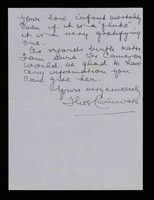 your low infant mortality
even if it is a "fluke"
it is a very gratifying
one.
As regards birth rates
I am sure Dr Cameron
would be glad to have
any information you
can give her.
Yours very sincerely